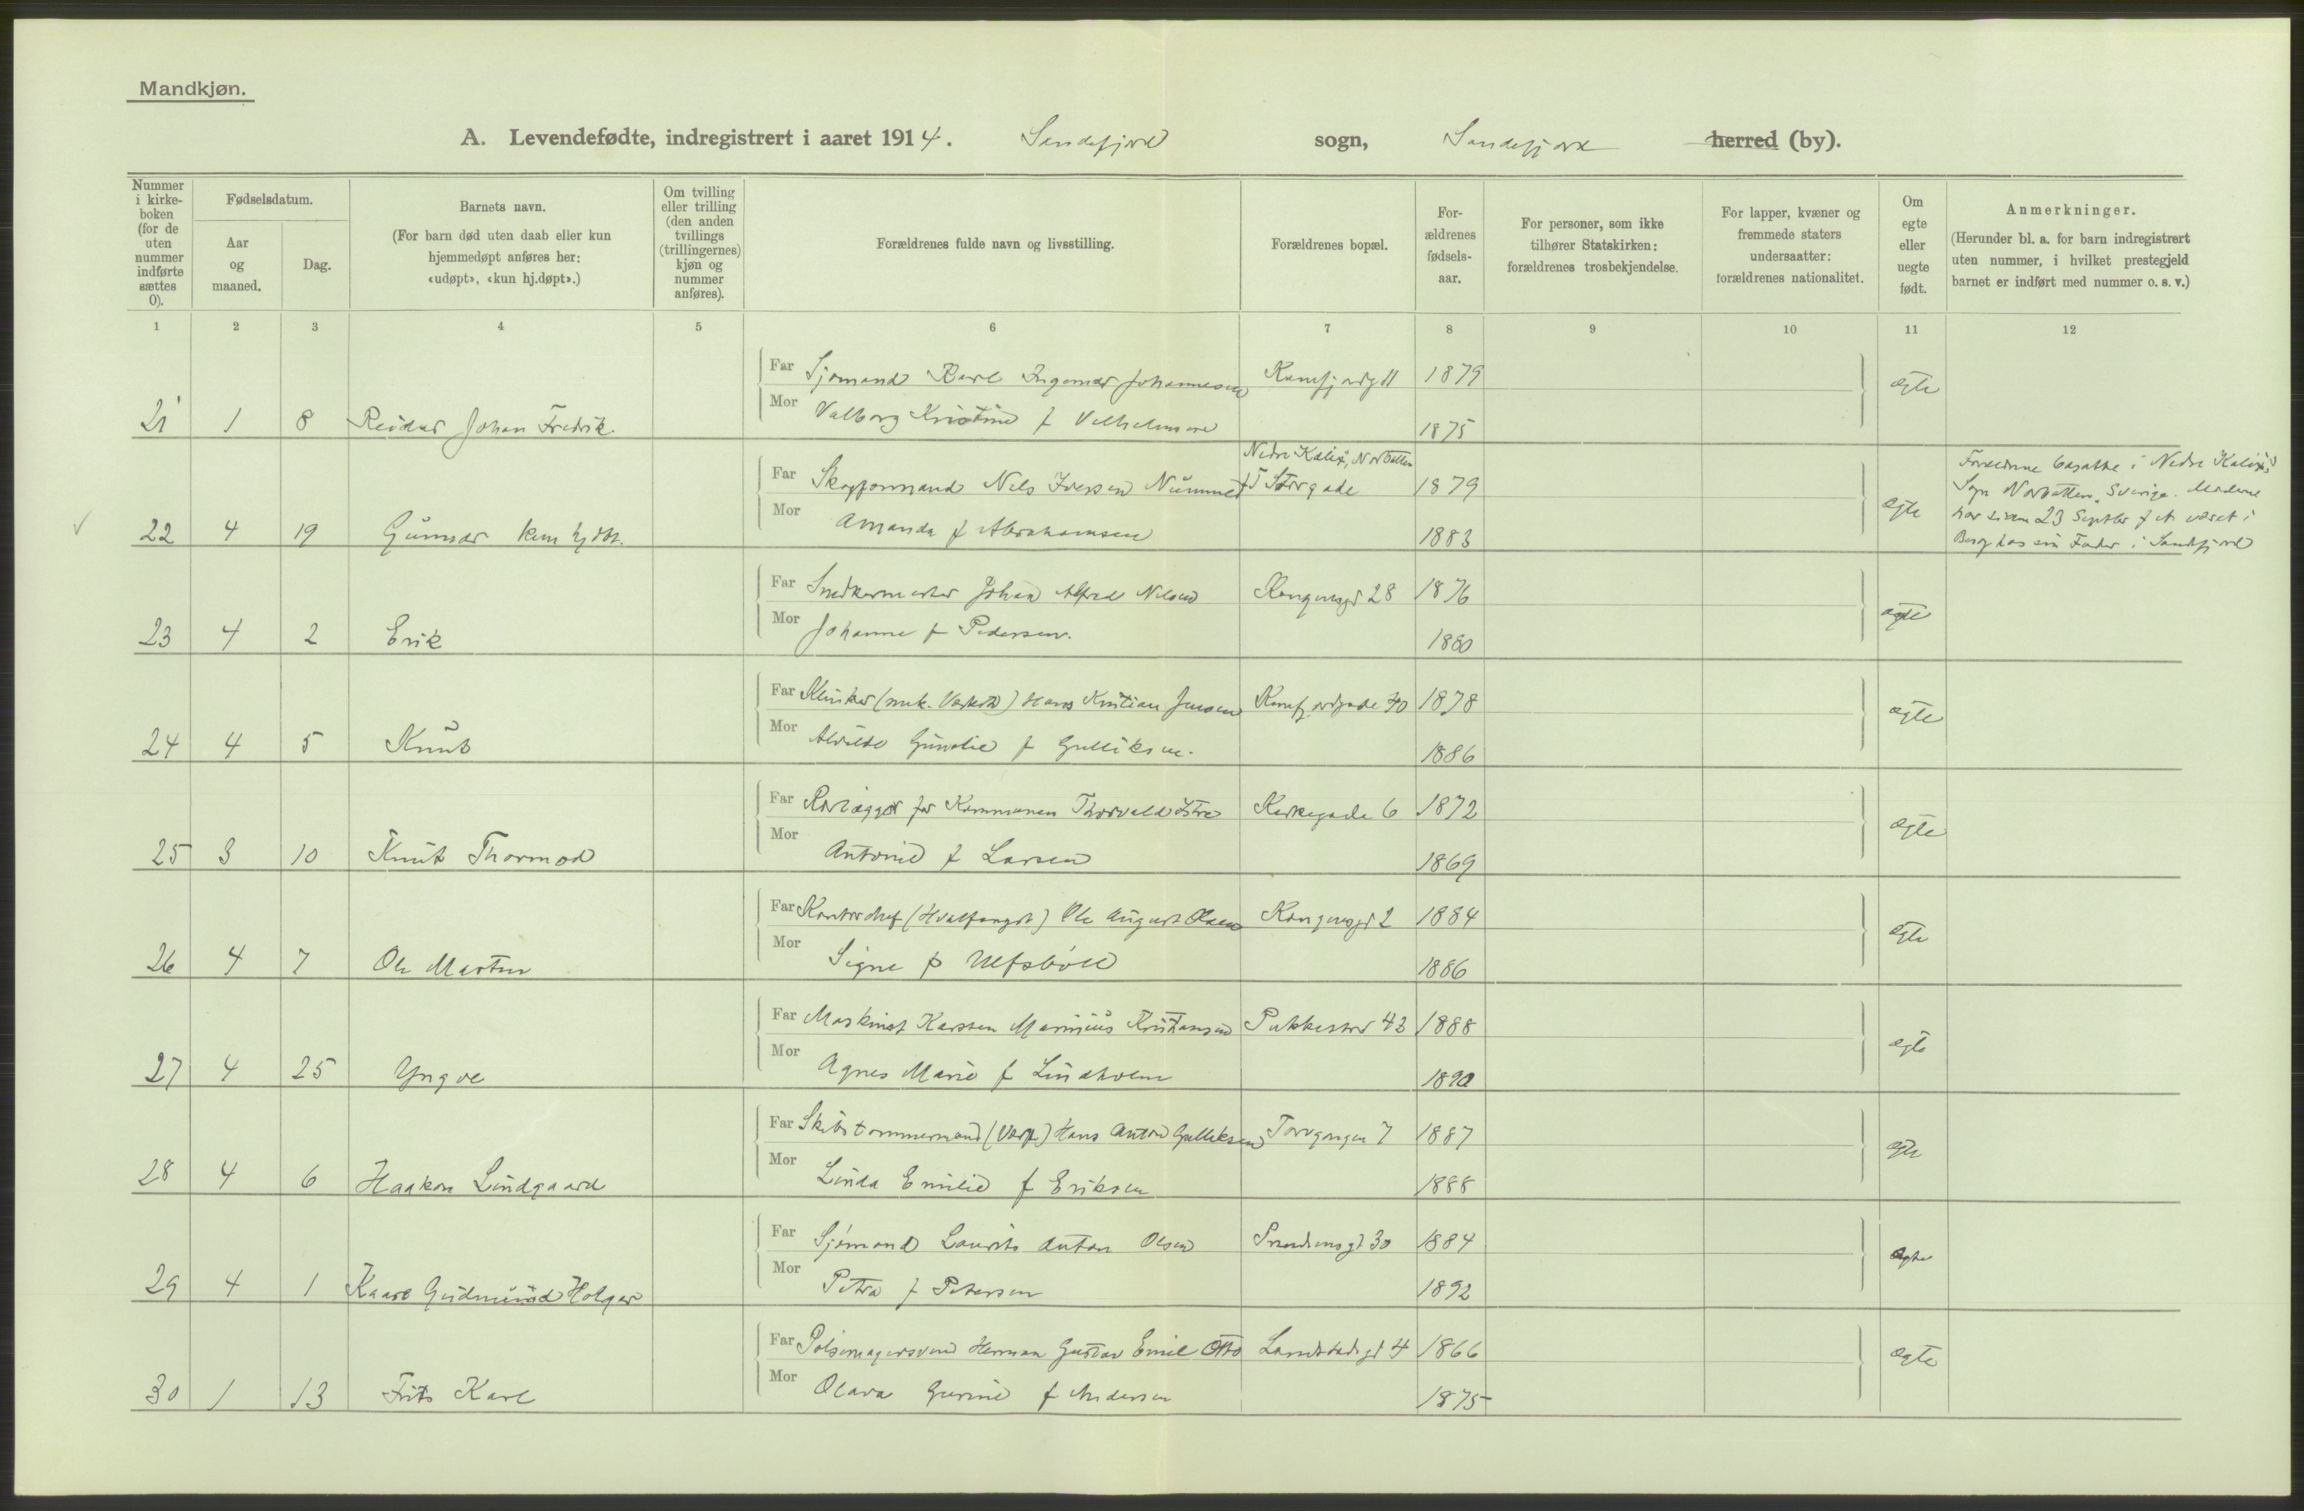 Mandkjøn.
A. Levendefødte, indregistrert i aaret 1914. Sandefjord sogn, Sandefjord herred (by).
Nummer i kirke-boken (for de uten nummer indførte sættes 0).
Fødselsdatum.
Aar og maaned.
Dag.
Barnets navn.
(For barn død uten daab eller kun hjemmedøpt anføres her: «udøpt», «kun hj.døpt».)
Om tvilling eller trilling (den anden tvillings (trillingernes) kjøn og nummer anføres).
Forældrenes fulde navn og livsstilling.
Forældrenes bopæl.
For-ældrenes fødsels-aar.
For personer, som ikke tilhører Statskirken: forældrenes trosbekjendelse.
For lapper, kvæner og fremmede staters undersaatter: forældrenes nationalitet.
Om egte eller uegte født.
Anmerkninger.
(Herunder bl. a. for barn indregistrert uten nummer, i hvilket prestegjeld barnet er indført med nummer o. s. v.)
1 2 3 4 5 6 7 8 9 10 11 12
Far Sjømand Karl Ingemar Johannesen Kamfjordg 11 1879 egte
21 1 8 Reidar Johan Fredrik.
Mor Valborg Kristine f Vilhelmsen 1875
Nedre Kalix, Norbotten
Far Skogformand Nils Iversen Nummel Storgade 1879 egte
22 4 19 Gunnar kun hjdbt.
Mor Amanda f Abrahamsen 1883
Forældrene bosatte i Nedre Kalix
Sogn Norbotten, Sverige. Moderen
har siden 23 Septbr f A været i
Besøg hos sin Fader i Sandefjord
Far Snedkermester Johan Alfred Nilsen Kongensgd 28 1876 egte
23 4 2 Erik
Mor Johanne f Pedersen. 1880
Far Klinker (mek. Verksted) Hans Kristian Jensen Kamfjordgade 40 1878 egte
24 4 5 Knut
Mor Alvilde Gunelie f Gulliksen. 1886
Far Rørlægger for Kommunen Thorvald Istre Kirkegade 6 1872 egte
25 3 10 Knut Thormod
Mor Antonie f Larsen 1869
Far Kontorchef (Hvalfangst) Ole August Olsen Kongensgd 2 1884 egte
26 4 7 Ole Martin
Mor Signe f Ulfsbøll 1886
Far Maskinist Karsten Marinius Kristiansen Pukkestad 43 1888 egte
27 4 25 Yngve
Mor Agnes Marie f Lindholm 1890
Far Skibstømmermand (Værft) Hans Anton Gulliksen Torvgangen 7 1887 egte
28 4 6 Haakon Lindgaard
Mor Linda Emilie f Eriksen 1888
Far Sjømand Laurits Anton Olsen Prindsensgt 30 1884 egte
29 4 1 Kaare Gudmund Holger
Mor Petra f Petersen 1892
Far Pølsemagersvend Herman Gustav Emil Otto Landstadsgt 4 1866 egte
30 1 13 Frits Karl
Mor Olava Gurine f Andersen 1875